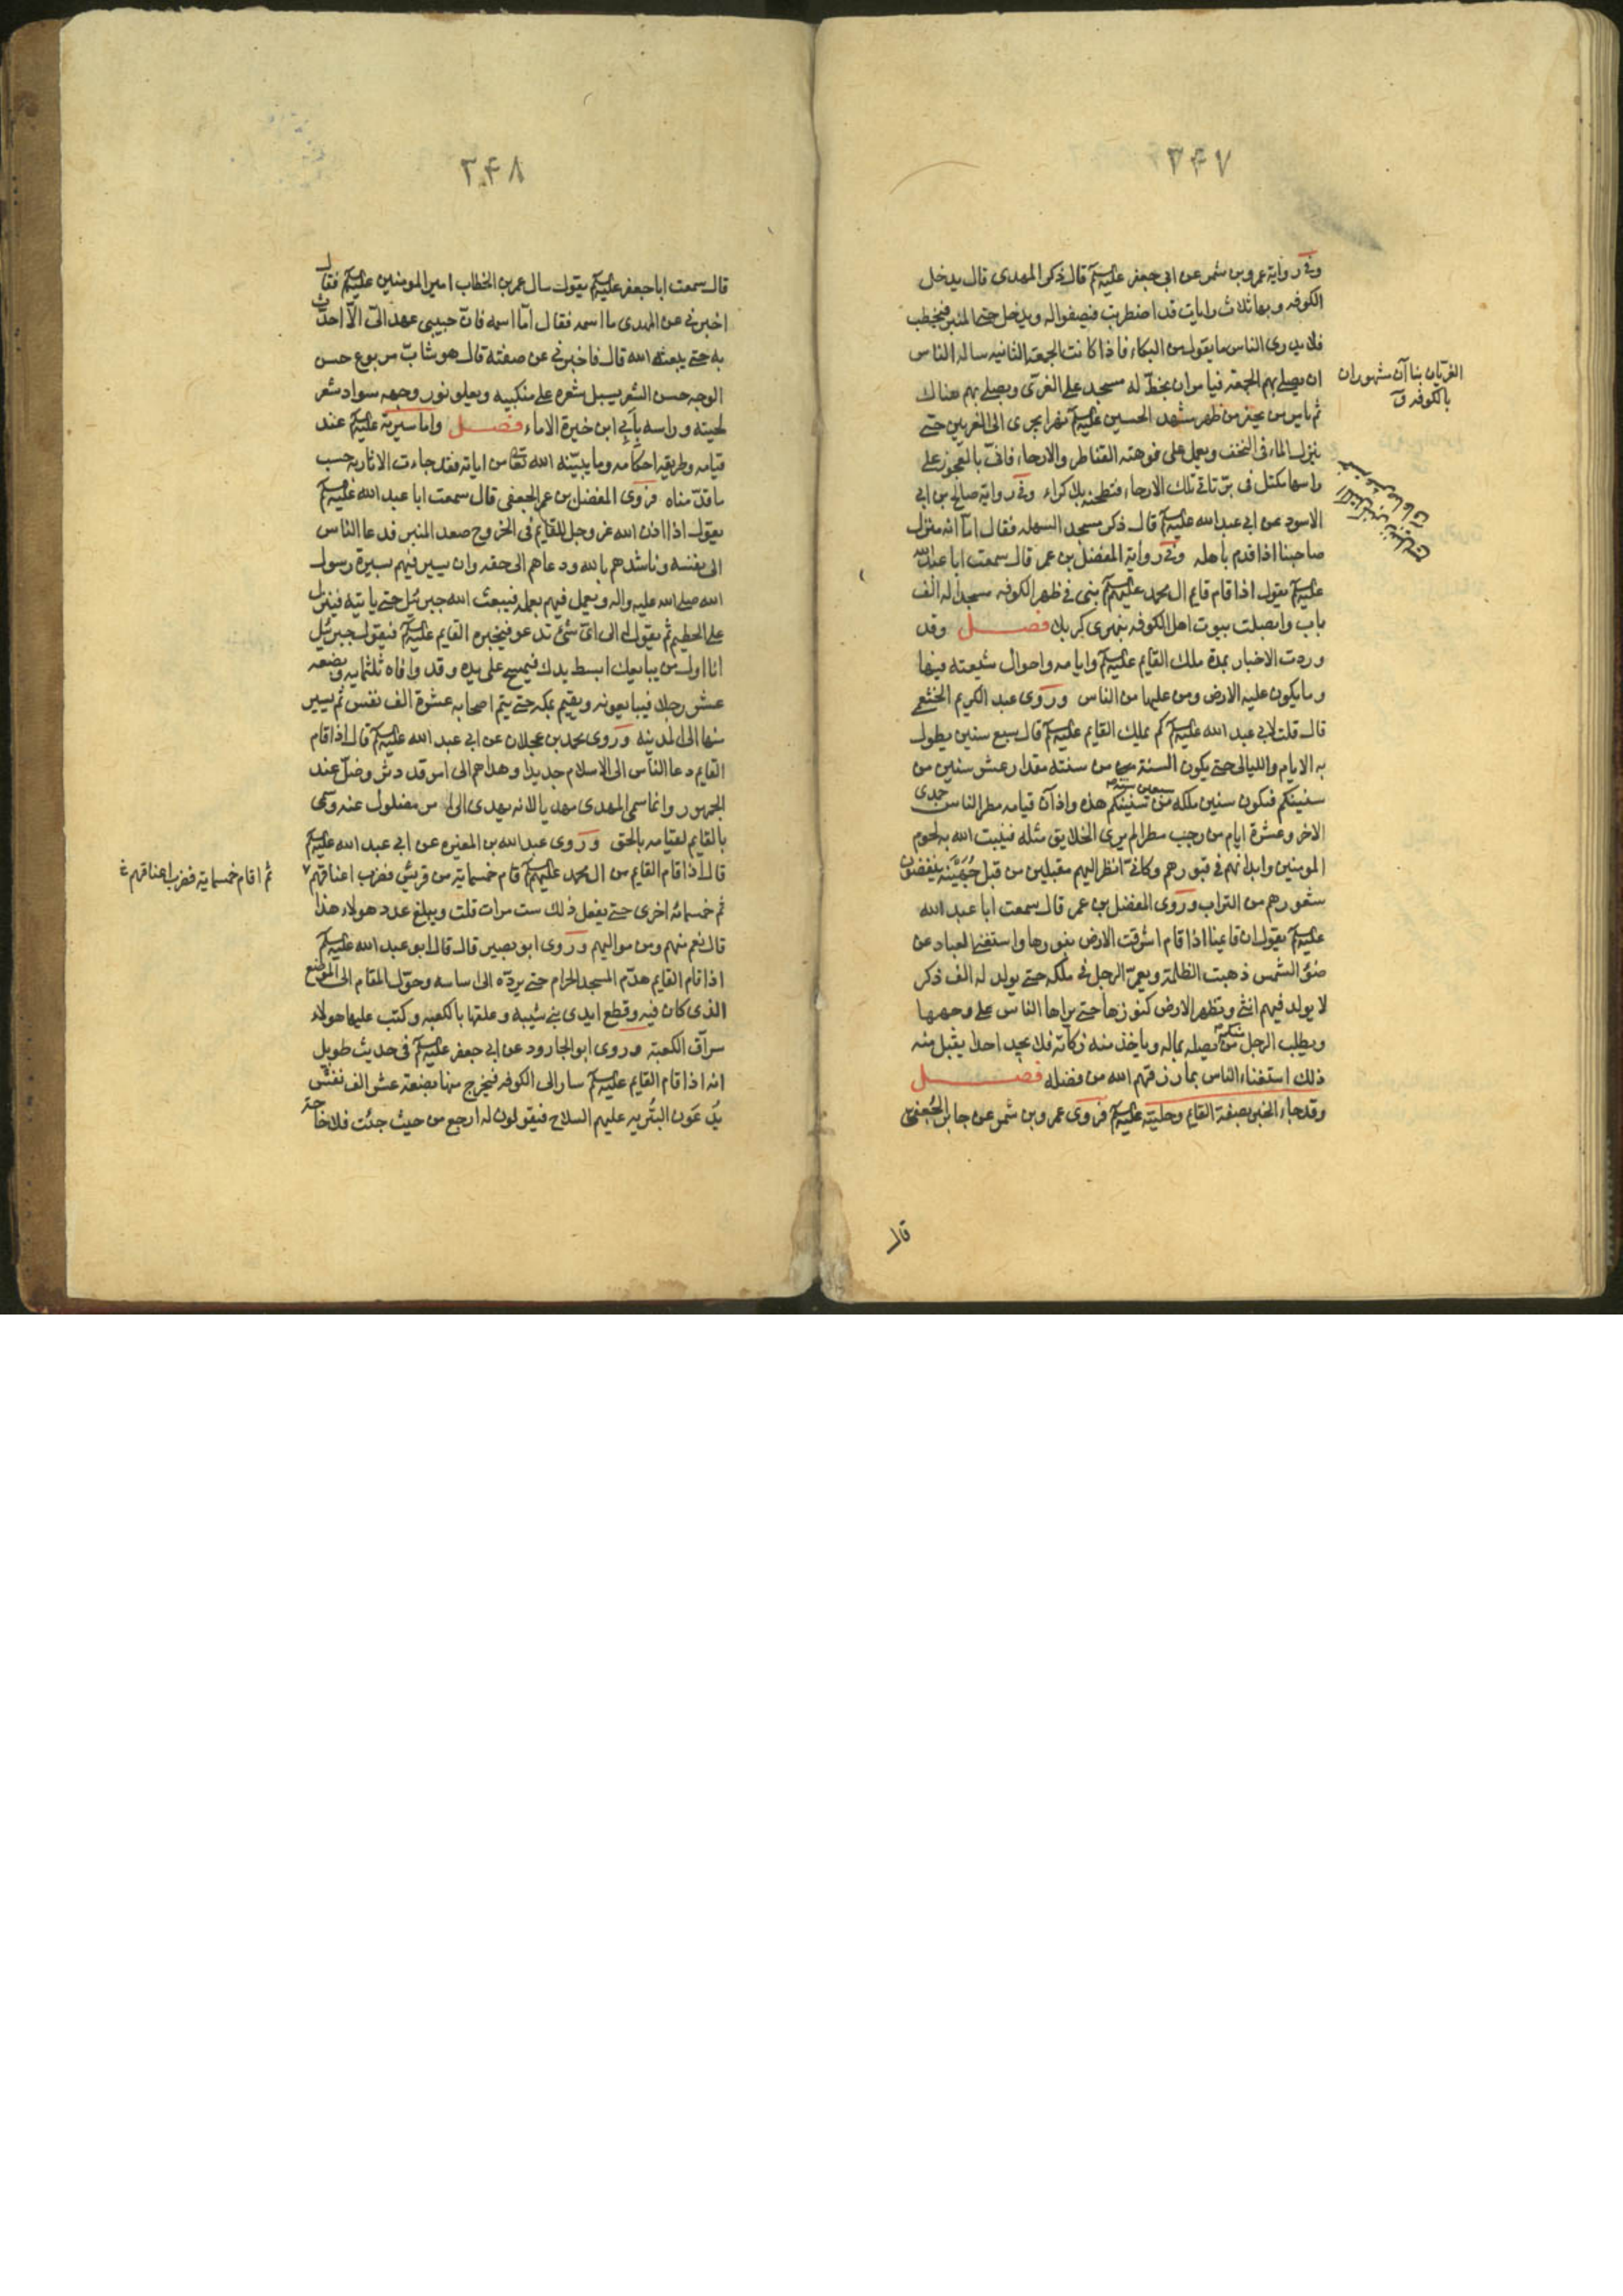 ٣۴٧
وفي رواية عمرو بن شمر عن ابي جعفر عليه السلم قال ذكر المهدي قال يدخل
الكوفه وبها ثلاث رايات قد اضطربت فتصفوا له ويدخل حتى المنبر فيخطب
فلا يدري الناس ما يقول من البكاء فاذا كانت الجمعة الثانيه ساله الناس
ان يصلي بهم الجمعة فيامر ان يخط له مسجد على الغرى ويصلي بهم هناك
ثم يامر من يحفر من ظهر مشهد الحسين عليه السلم نهرا يجري الى الغريين حتى
ينزل الماء في النجف ويعمل على فوهته القناطر والارحاء فاني بالعجوز على
راسها مكتل فيه بر تاتي تلك الارحاء فتطحنه بلا كراء وفي رواية صالح بن ابي
الاسود عن ابي عبدالله عليه السلم قال ذكر مسجد السهله فقال اما انه منزل
صاحبنا اذا قدم باهله وفي رواية المفضل بن عمر قال سمعت ابا عبدالله
عليه السلم يقول اذا قام قايم ال محمد عليهم السلم بنى في ظهر الكوفه مسجدا له الف
باب واتصلت بيوت اهل الكوفه بنهري كربلا فصل وقد
وردت الاخبار بمدة ملك القايم عليه السلم وايامه واحوال شيعته فيها
وما يكون عليه الارض ومن عليها من الناس وروى عبد الكريم الخثعمي
قال قلت لابي عبد الله عليه السلم كم يملك القايم عليه السلم قال سبع سنين يطول
به الايام والليالي حتى يكون السنة من سنته مقدار عشر سنين من
سنينكم فيكون سنين ملكه سبعين سنة من سنينكم هذه واذا آن قيامه مطر الناس جمدى
الاخر وعشرة ايام من رجب مطرا لم يرى الخلايق مثله فينبت الله به لحوم
المومنين وابدانهم في قبورهم وكاني انظر اليهم مقبلين من قبل جهينة ينفضون
شعورهم من التراب وروى المفضل بن عمر قال سمعت ابا عبد الله
عليه السلم يقول ان قايمنا اذا قام اشرقت الارض بنورها واستغنى العباد عن
ضوء الشمس ذهبت الظلمة ويعمر الرجل في ملكه حتى يولد له الف ذكر
لا يولد فيهم انثى وتظهر الارض كنوزها حتى يراها الناس على وجهها
ويطلب الرجل منكم من يصله بماله وياخذ منه زكاته فلا يجد احدا يقبل منه
ذلك استغناء الناس بما رزقهم الله من فضله فصل
وقد جاء الخبر بصفة القايم وحليته عليه السلم فروى عمرو بن شمر عن جابر الجعفي
قال
الغريان بنا آن مشهوران
بالكوفه ق
٣۴٨
قال سمعت ابا جعفر عليه السلم يقول سال عمر بن الخطاب امير المومنين عليه السلم فقال
اخبرني عن المهدي ما اسمه فقال اما اسمه فان حبيبي عهد الي الا احدث
به حتى يبعثه الله قال فاخبرني عن صفته قال هو شاب مربوع حسن
الوجه حسن الشعر يسيل شعره على منكبيه ويعلو نور وجهه سواد شعر
لحيته وراسه بابي ابن خيرة الاماء فصل واما سيرته عليه السلم عند
قيامه وطريقه احكامه وما يبينه الله تعالى من اياته فقد جاءت الاثار به حسب
ما قدمناه فروى المفضل بن عمر الجعفي قال سمعت ابا عبد الله عليه السلم
يقول اذا اذن الله عز وجل للقايم في الخروج صعد المنبر فدعا الناس
الى نفسه وناشدهم بالله ودعاهم الى حقه وان يسير فيهم بسيرة رسول
الله صلى الله عليه واله ويعمل فيهم بعمله فيبعث الله جبرئيل حتى ياتيه فينزل
على الحطيم ثم يقول الى اي شئ تدعو فيخبره القايم عليه السلم فيقول جبرئيل
انا اول من يبايعك ابسط يدك فيمسح على يده وقد وافاه ثلثمايه وبضعه
عشر رجلا فيبايعونه ويقيم بمكه حتى يتم اصحابه عشرة الف نفس ثم يسير
منها الى المدينه وروى محمد بن عجلان عن ابي عبد الله عليه السلم قال اذا قام
القايم دعا الناس الى الاسلام جديدا وهداهم الى امر قد دثر وضل عند
الجمهور وانما سمي المهدي مهديا لانه يهدي الى امر مضلول عنه وسمى
بالقايم لقيامه بالحق وروى عبد الله بن المغيره عن ابي عبد الله عليه السلم
قال اذا قام القايم من ال محمد عليهم السلم قام خمسماية من قريش فضرب اعناقهم ٧
ثم خمسمائه اخرى حتى يفعل ذلك ست مرات قلت ويبلغ عدد هولاء هذا
قال نعم منهم ومن مواليهم وروى ابو بصير قال قال ابو عبد الله عليه السلم
اذا قام القايم هدم المسجد الحرام حتى يرده الى اساسه وحول المقام الى الموضع
الذي كان فيه وقطع ايدي بني شيبه وعلقها بالكعبه وكتب عليها هولاء
سراق الكعبة وروى ابو الجارود عن ابي جعفر عليه السلم في حديث طويل
انه اذا قام القايم عليه السلم سار الى الكوفه فيخرج منها بضعة عشر الف نفس
يدعون البتريه عليهم السلاح فيقولون له ارجع من حيث جئت فلا حاجة
ثم اقام خمسماية فضرب اعناقهم